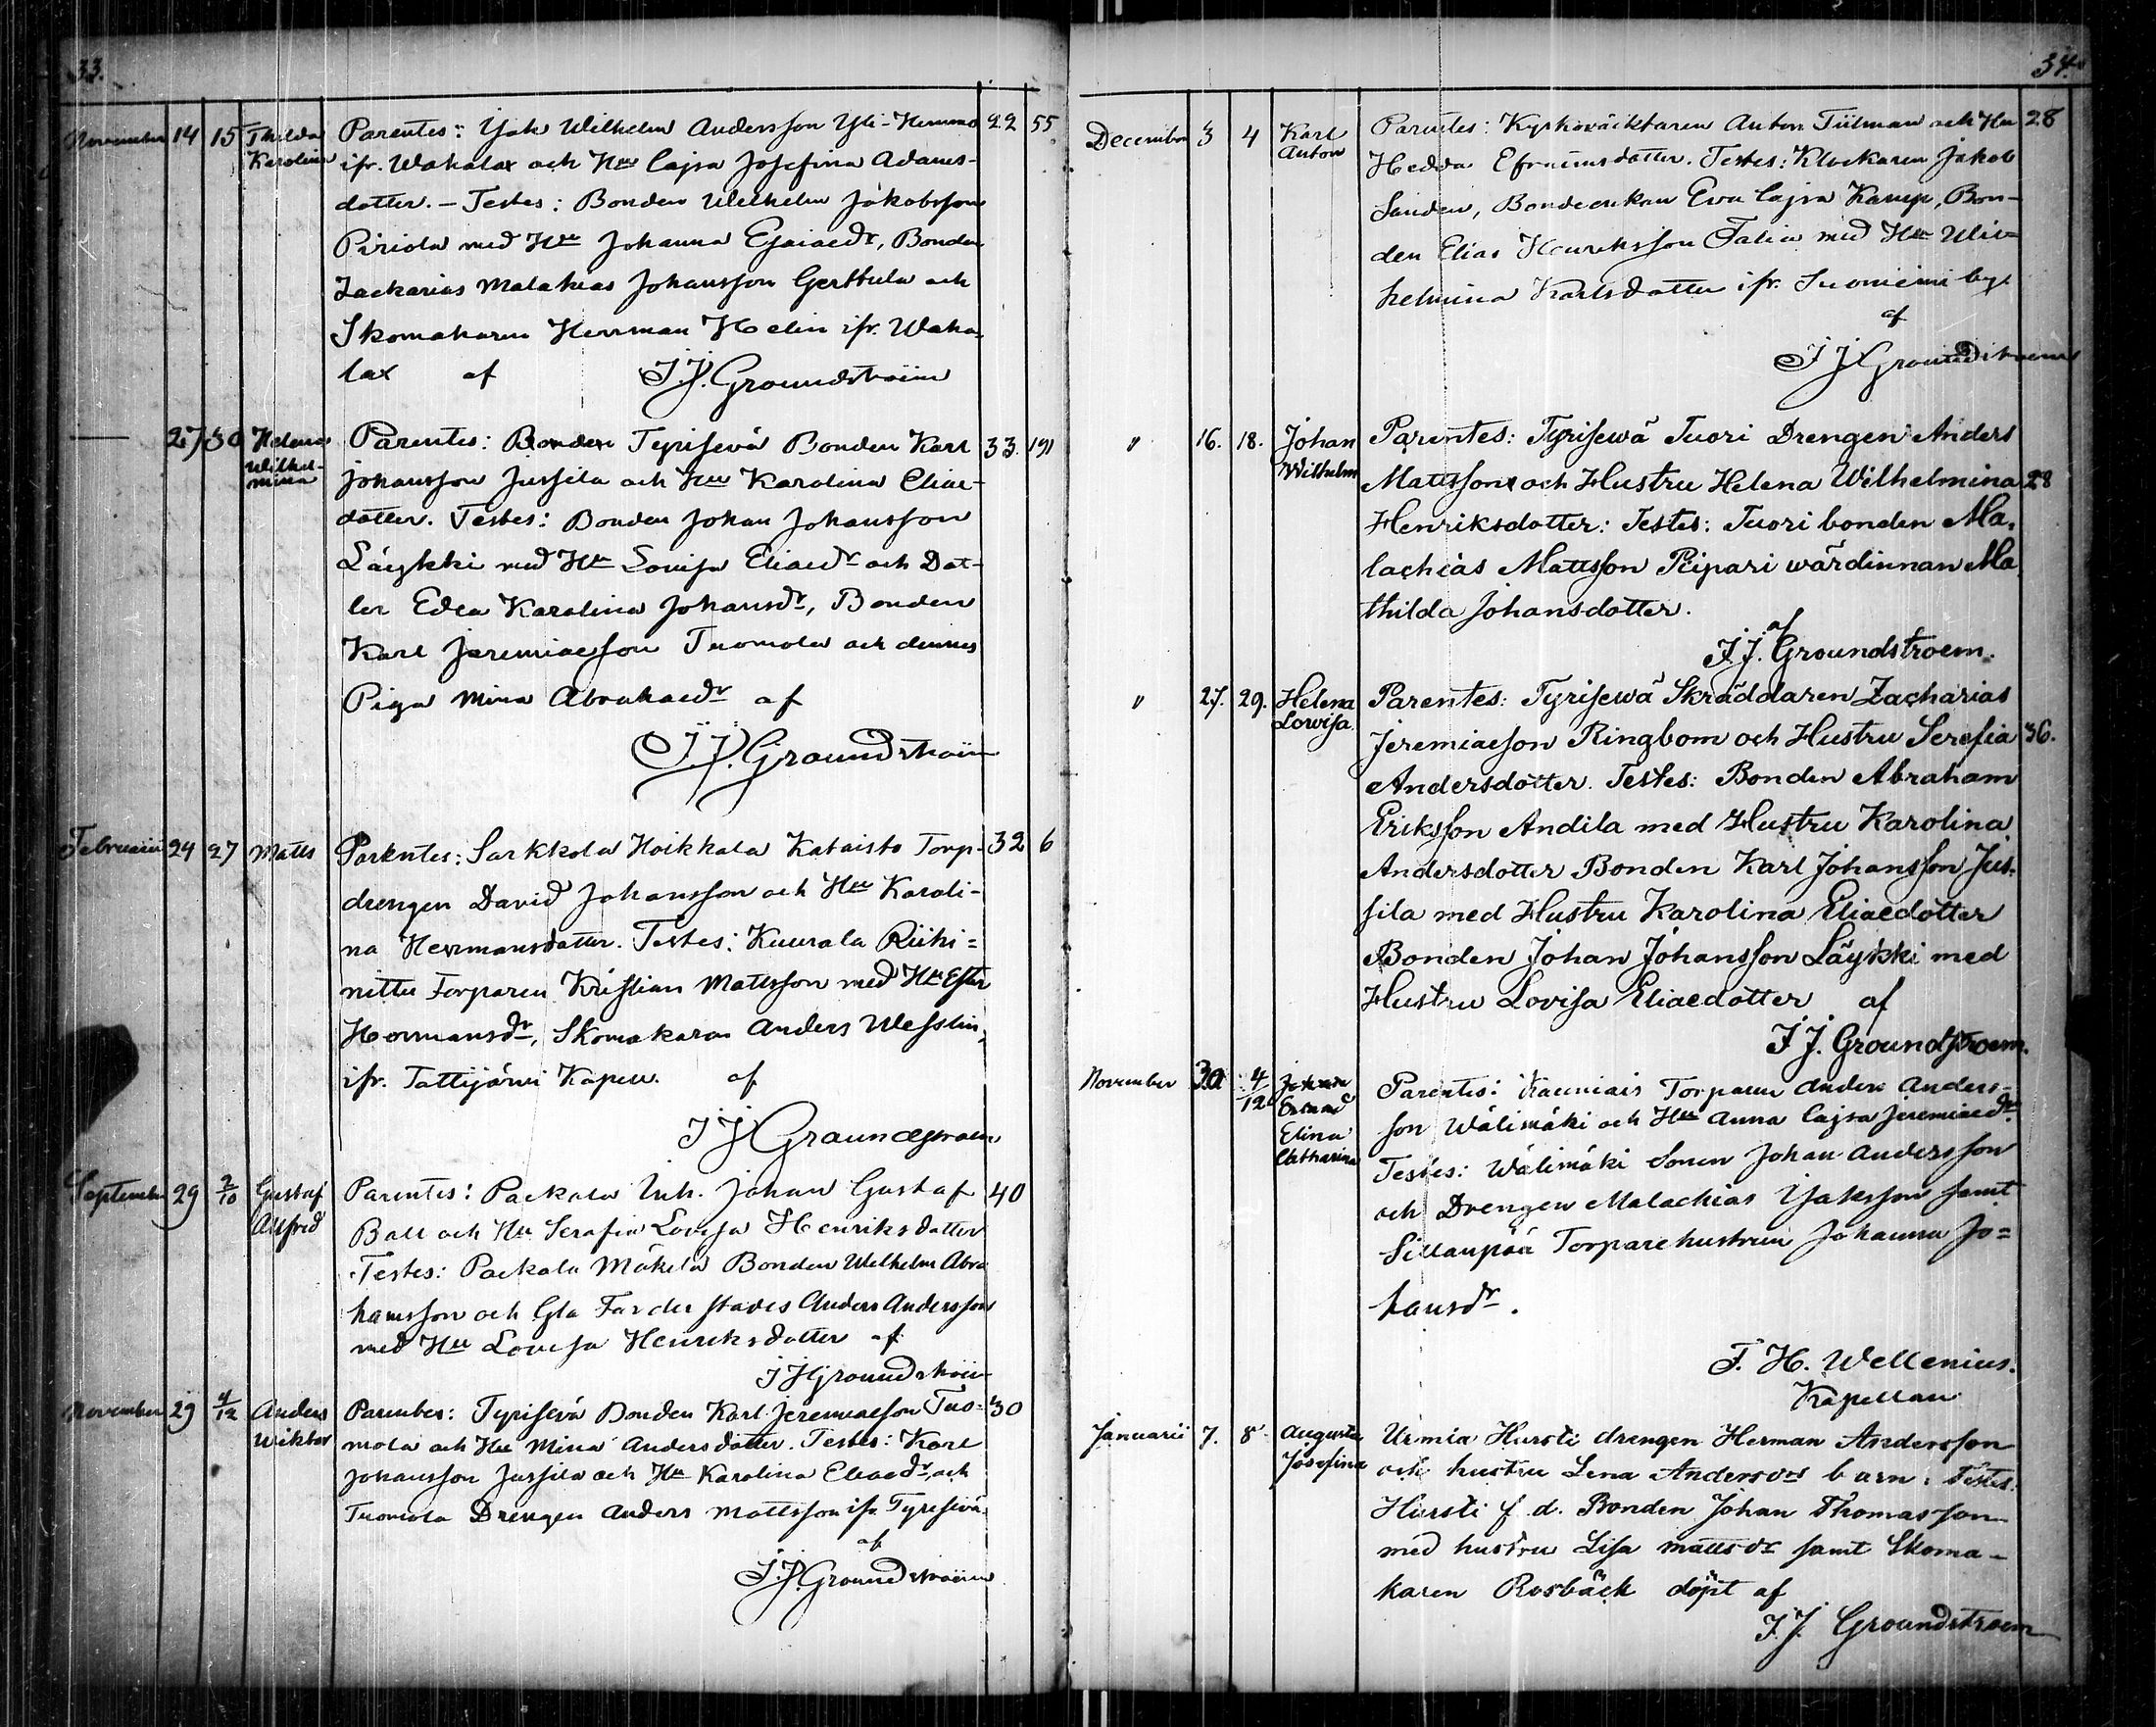 33.
November 14 15 Thilda Karolina Parentes: Isak Wilhelm Andersson Yli- 22 55
ifr. Wahalax och Hu Cajsa Josefina Adams-
dotter. – Testes: Bonden Wilhelm Jakobsson
Piriola med Hu Johanna Esaiaedr, Bonden
Zackarias Malakias Johansson Gerttula och
Skomakaren Herrman Helin ifr. Waha-
lax af J.J. Groundstroëm
— 27 30 Helena Wilhelmina Parentes: Bonden Tyrisevä Bonden Karl 33. 191
Johansson Jussila och Hu Karolina Eliae-
dotter. Testes: Bonden Johan Johansson
Läykki med Hu Lovisa Eliaedr och Dot-
ter Edla Karolina Johansdr, Bonden
Karl Jeremiaesson Tuomola och dennes
Piga Mina Abrahaedr af
J.J. Groundstroëm
Februarii 24 27 Matts Parentes: Sarkkola Hoikkala Kataisto Torp- 32 6
drengen David Johansson och Hu Karoli-
na Hermansdotter. Testes: Kuurala Riihi=
nittu Torparen Kristian Mattsson med Hu Ester
Hermansdr, Skomakaren Anders Wesslin,
ifr. Tattijärvi Kapell. af
J J Groundstroem
September 29 2/10 Gustaf Alfred Parentes: Paekala Inh. Johan Gustaf 40
Ball och Hu Serafia Lovisa Henriksdotter
Testes: Paekala Mäkelä Bonden Wilhelm Abra
hamsson och Anders Andersson
med Hu Lovisa Henriksdotter af
J J Groundstroëm
November 29 4/12 Anders Wiktor Parentes: Tyrisevä Bonden Karl Jeremiaesson Tuo- 30
mola och Hu Mina Andersdotter. Testes: Karl
Johansson Jussila och Hu Karolina Eliaedr, och
Tuomola Drengen Anders Mattsson ifr. Tyrisevä
af
J.J. Groundstroëm
34.
December 3 4 Karl Anton Parentes: Kyrkoväcktaren Anton Tilman och Hu 28
Hedda Efraimsdotter. Testes: Klockaren Jakob
Sanden, Bondeenkan Eva Cajsa Kamp, Bon-
den Elias Henriksson Talia med Hu Wil=
helmina Karlsdotter ifr. Suoniemi by.
af
J J Groundstroem
" 16. 18. Johan Wilhelm Parentes: Tyrisewä Tuori Drengen Anders
Mattsson och Hustru Helena Wilhelmina 28
Henriksdotter: Testes: Tuori bonden Ma-
lachias Mattsson Piipari wärdinnan Ma
thilda Johansdotter.
af
J.J. Groundstroem.
" 27. 29. Helena Lovisa Parentes: Tyrisewä Skräddaren Zacharias
Jeremiaeson Ringbom och Hustru Serefia 36.
Andersdotter. Testes: Bonden Abraham
Eriksson Andila med Hustru Karolina
Andersdotter Bonden Karl Johansson Jus-
sila med Hustru Karolina Eliaedotter
Bonden Johan Johansson Läykki med
Hustru Lovisa Eliaedotter af
J J. Groundstroem.
November 30 4/12 Elina Catharina Parentes: Kauniais Torparen Anders Anders-
son Wälimäki och Hu Anna Cajsa Jeremiaedr
Testes: Wälimäki Sonen Johan Andersson
och Drengen Malachias Isaksson samt
Sillanpää Torparehustrun Johanna Jo=
hansdr.
F. H. Wellenius.
Kapellan
Januarii 7. 8 Augusta Josefina Urmia Hursti drengen Herman Andersson
och hustru Lena Andersdr barn: Testes:
Hursti f. d. Bonden Johan Thomasson
med hustru Lisa Mattsdr samt Skoma-
karen Rosbäck döpt af
J.J. Groundstroem